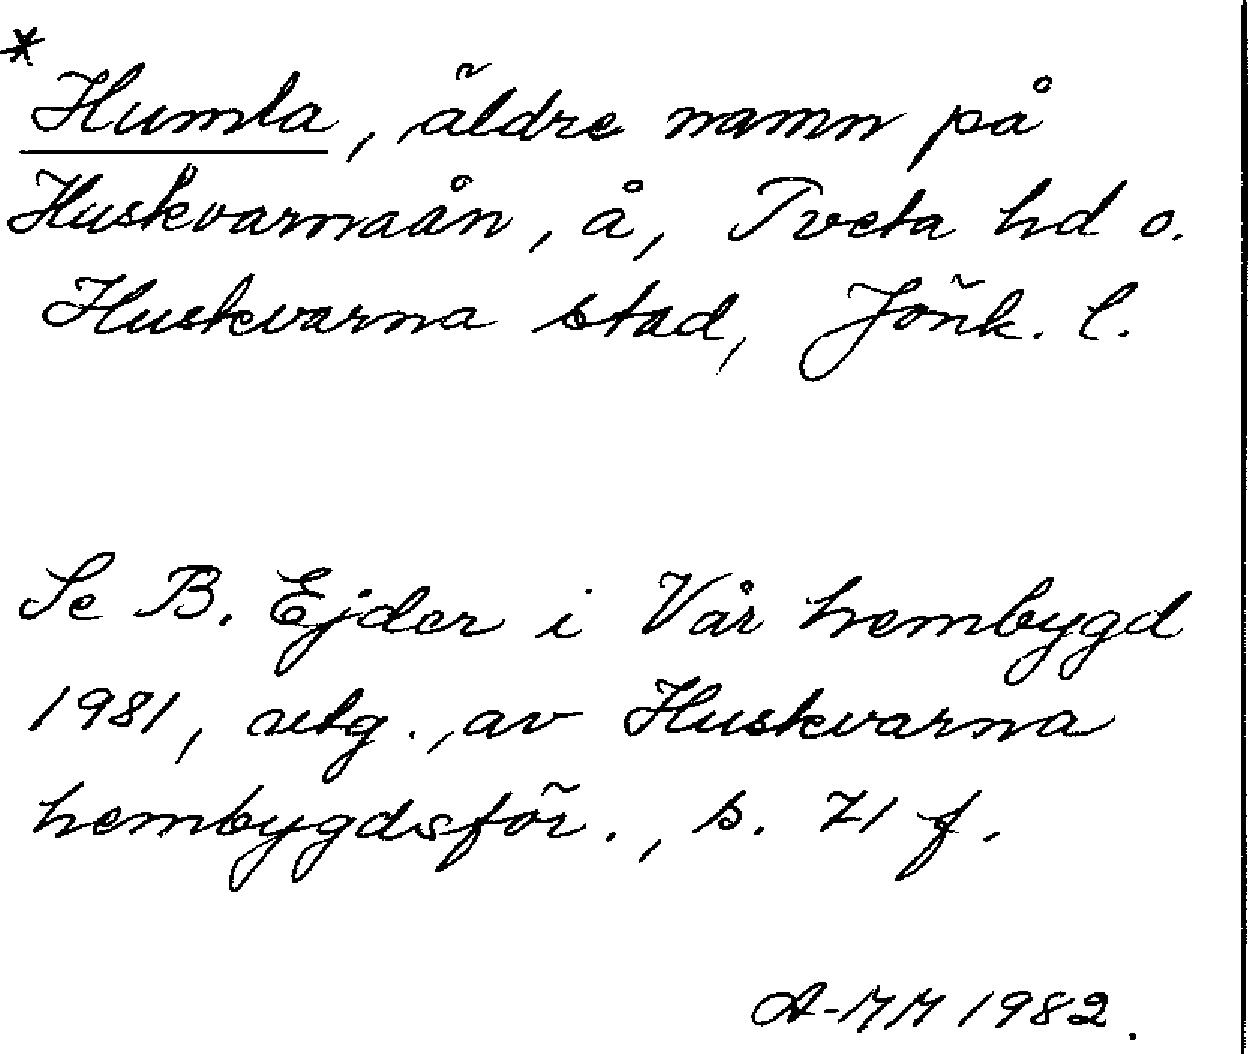 *
Humla, äldre namn på
Huskvarnaån, å, Tveta hd o.
Huskvarna stad, Jönk. l.
Se B. Ejder i Vår hembygd
1981, utg. av Huskvarna
hembygdsför., s. 71 f.
A-MM 1982.